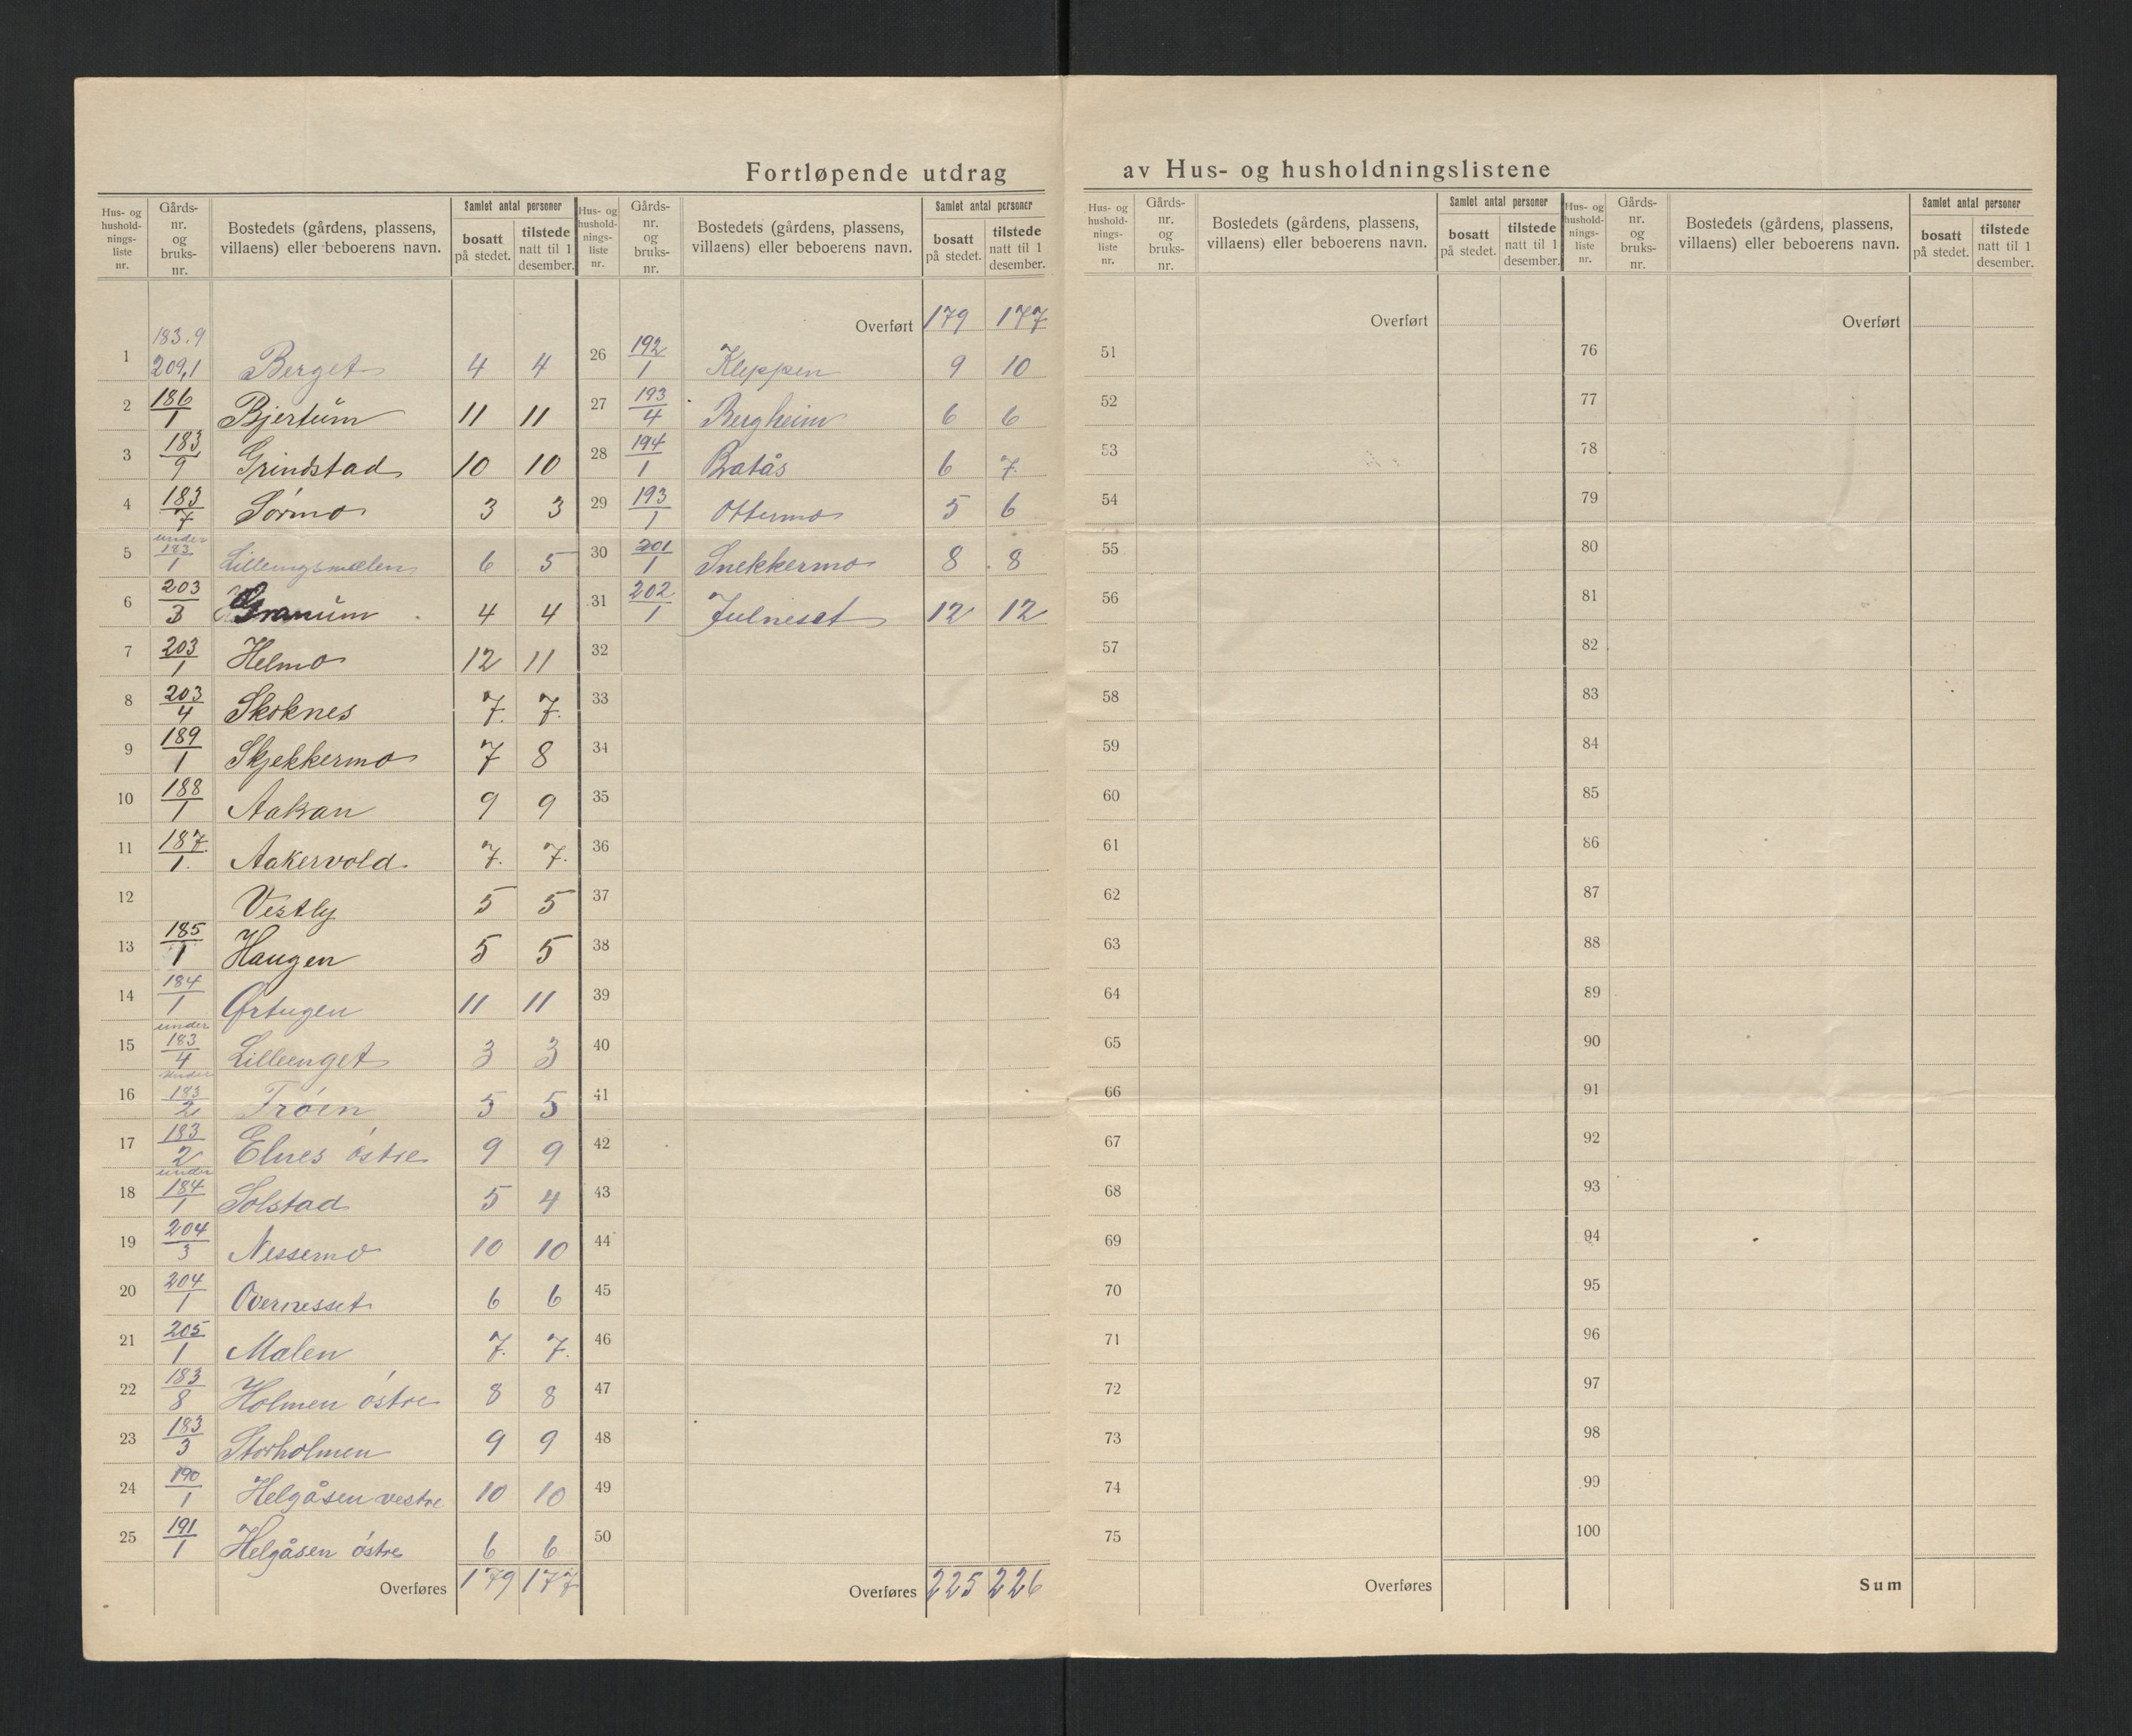 Fortløpende utdrag av Hus- og husholdningslistene
Hus- og hushold- nings- liste nr. Gårds- nr. og bruks- nr. Bostedets (gårdens, plassens, villaens) eller beboerens navn. Samlet antal personer bosatt på stedet. tilstede natt til 1 desember.
1 183.9 209,1 Berget 4 4
2 186/1 Bjertum 11 11
3 183/9 Grindstad 10 10
4 183/7 Sørmo 3 3
5 under 183/1 Lillengsmælen 6 5
6 203/3 Granum 4 4
7 203/1 Helmo 12 11
8 203/4 Skoknes 7. 7.
9 189/1 Skjekkermo 7 8
10 188/1 Aakran 9 9
11 187/1. Aakervold. 7. 7.
12 Vestly 5 5
13 185/1 Haugen 5 5
14 184/1 Ørtugen 11 11
15 under 183/4 Lilleenget 3 3
16 under 183/2 Trøen 5 5
17 183/2 Elnes østre 9 9
18 under 184/1 Solstad 5 4
19 204/3 Nessemo 10 10
20 204/1 Overnesset 6 6
21 205/1 Malen 7. 7.
22 183/8 Holmen østre 8 8
23 183/3 Storholmen 9 9
24 190/1 Helgåsen vestre 10 10
25 191/1 Helgåsen østre 6 6
Overføres 179 177
Hus- og hushold- nings- liste nr. Gårds- nr. og bruks- nr. Bostedets (gårdens, plassens, villaens) eller beboerens navn. Samlet antal personer bosatt på stedet. tilstede natt til 1 desember.
Overført 179 177
26 192/1 Kleppen 9 10
27 193/4 Bergheim 6 6
28 194/1 Bratås 6 7.
29 193/1 Ottermo 5 6
30 201/1 Snekkermo 8 8
31 202/1 Julneset 12 12
32
33
34
35
36
37
38
39
40
41
42
43
44
45
46
47
48
49
50
Overføres 225 226
Hus- og hushold- nings- liste nr. Gårds- nr. og bruks- nr. Bostedets (gårdens, plassens, villaens) eller beboerens navn. Samlet antal personer bosatt på stedet. tilstede natt til 1 desember.
Overført
51
52
53
54
55
56
57
58
59
60
61
62
63
64
65
66
67
68
69
70
71
72
73
74
75
Overføres
Hus- og hushold- nings- liste nr. Gårds- nr. og bruks- nr. Bostedets (gårdens, plassens, villaens) eller beboerens navn. Samlet antal personer bosatt på stedet. tilstede natt til 1 desember.
Overført
76
77
78
79
80
81
82
83
84
85
86
87
88
89
90
91
92
93
94
95
96
97
98
99
100
Sum